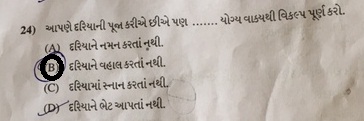 24) આપણે દરિયાની પૂજા કરીએ છીએ પણ ....... યોગ્ય વાક્યથી વિકલ્પ પૂર્ણ કરો.
(A) દરિયાને નમન કરતાં નથી.
(B) દરિયાને વહાલ કરતાં નથી.
(C) દરિયામાં સ્નાન કરતાં નથી.
(D) દરિયાને ભેટ આપતાં નથી.